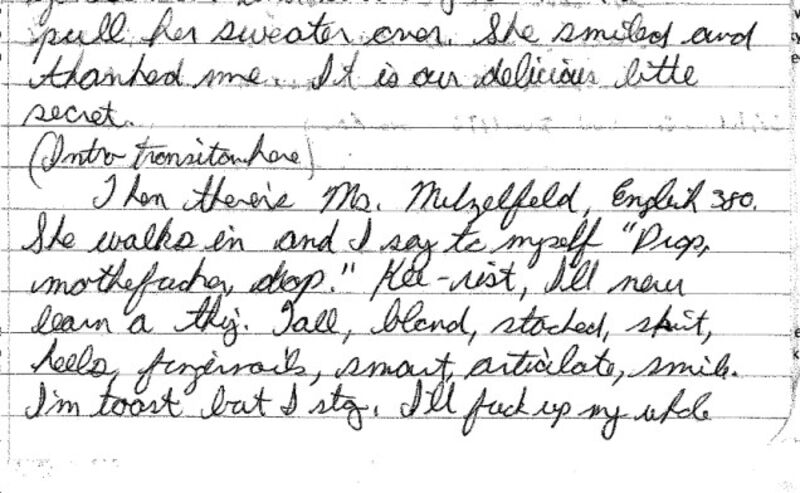 pull her sweater over. She smiled and
thanked me. It is our delicious little
secret.
(Intro transiton here)
Then there's Ms. Mitzelfeld, English 380.
She walks in and I say to myself "Drop,
mothefucker, drop." Kee-rist, I'll never
learn a thing. Tall, blond, stacked, skirt,
heels, fingernails, smart, articulate, smile.
I'm toast but I stay. I'll fuck up my whole